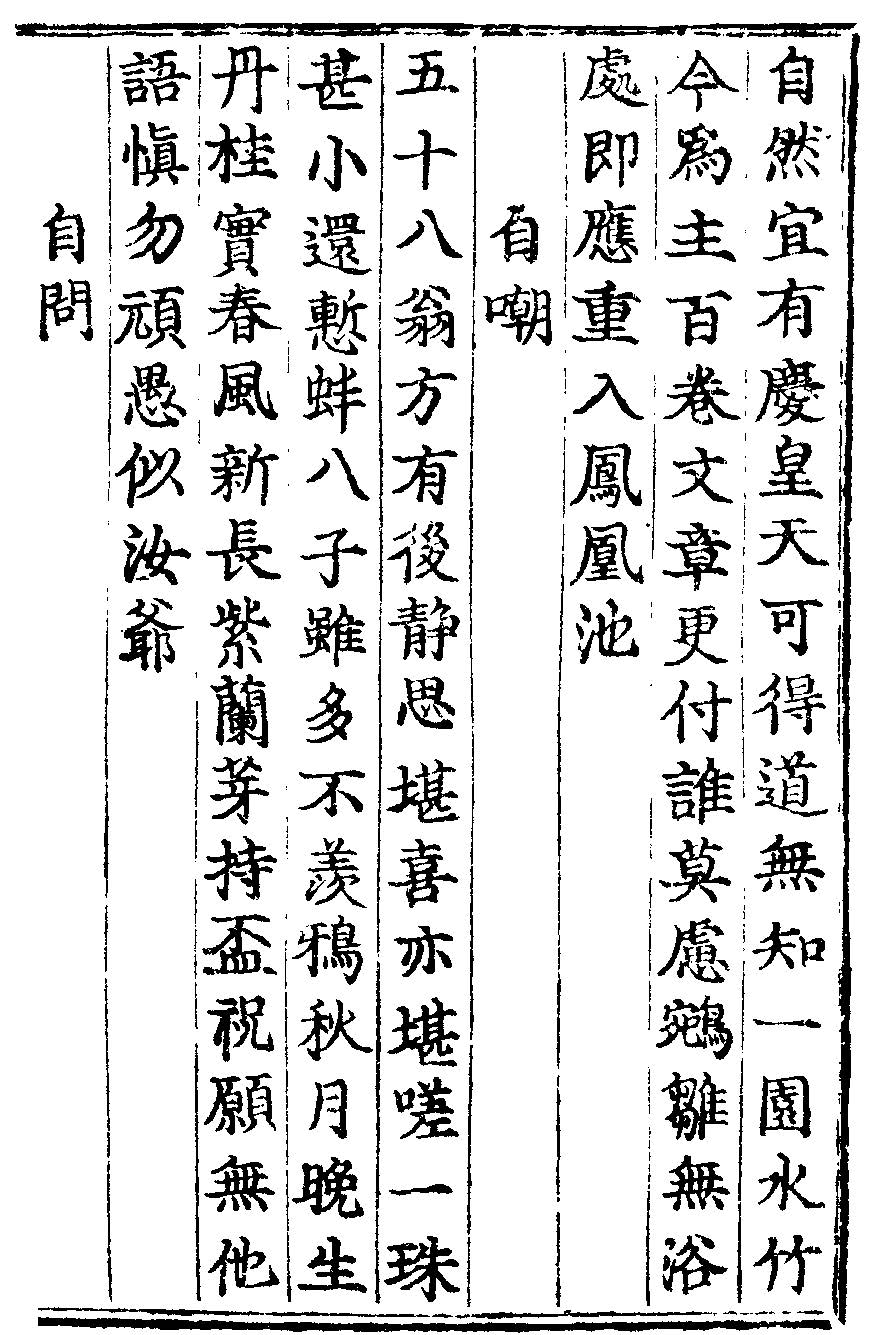 自然宜有慶皇天可得道無知一園水竹
今爲主百卷文章更付誰莫慮鵷雛無浴
處即應重入鳳凰池
自嘲
五十八翁方有後靜思堪喜亦堪嗟一珠
甚小還慙蚌八子雖多不羨鴉秋月晚生
丹桂實春風新長紫蘭芽持盃祝願無他
語愼勿頑愚似汝爺
自問